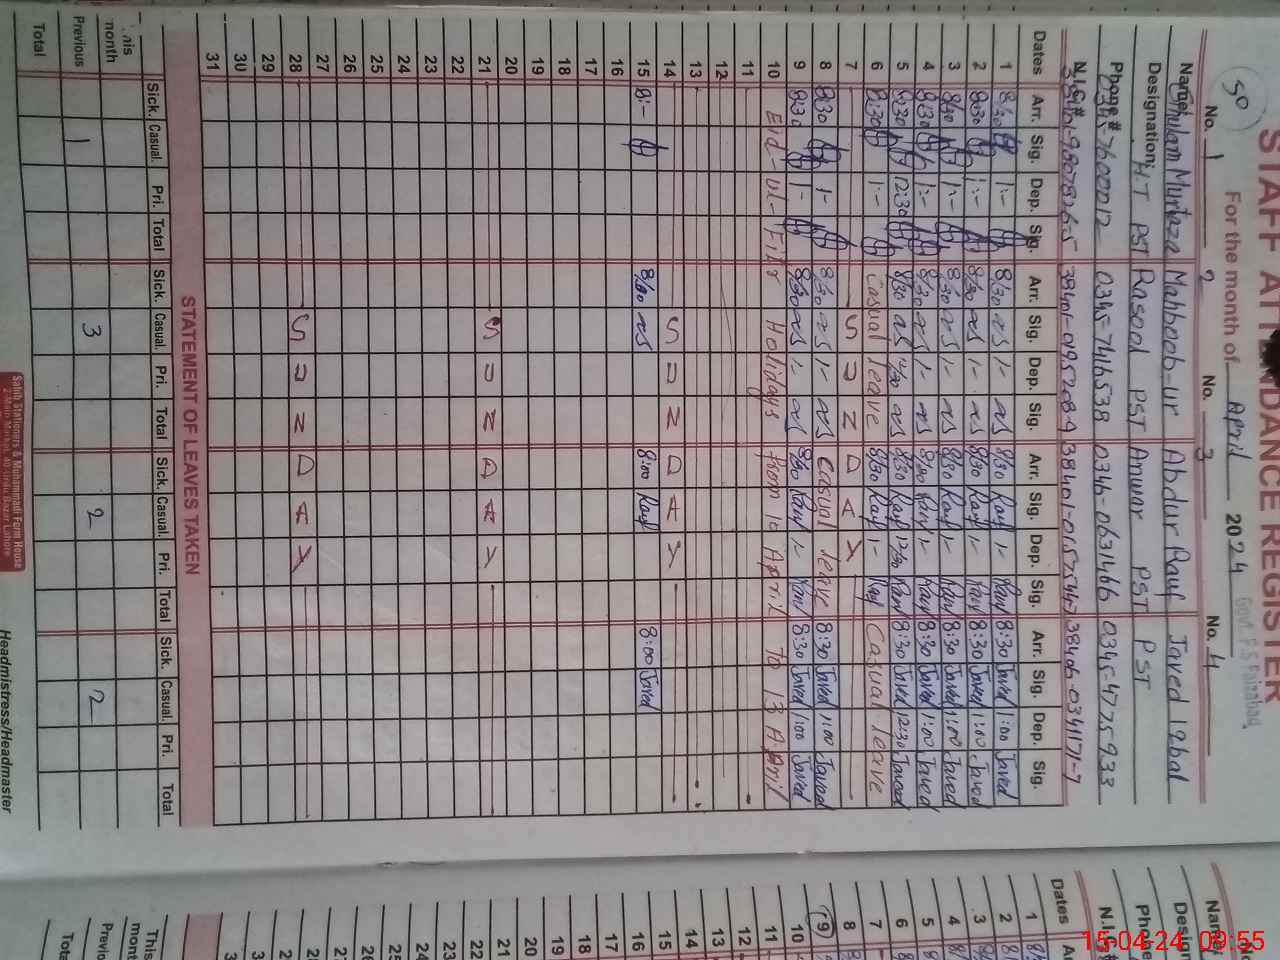 STAFF ATTENDANCE REGISTER
50
For the month of April 2024
Govt. P.S Faizabad
No. 1 No. 2 No. 3 No. 4
Name: Ghulam Murtaza Mahboob-ur Abdur Rauf Javed Iqbal
Designation: H.T PST Rasool PST Anwar PST PST
Phone # 0345-7416538 0346-0631466 0345-4775933
N.I.C #
Dates Arr. Sig. Dep. Sig. Arr. Sig. Dep. Sig. Arr. Sig. Dep. Sig. Arr. Sig. Dep. Sig.
1 8/30 1:- 8/30 1- 8/30 Rauf 1- Rauf 8:30 Javed 1:00 Javed
2 8:30 1:- 8/30 1- 8/30 Rauf 1- Rauf 8:30 Javed 1:00 Javed
3 8/30 1:- 8/30 1- 8/30 Rauf 1- Rauf 8:30 Javed 1:00 Javed
4 8:30 1:- 8/30 1- 8/30 Rauf 1- Rauf 8:30 Javed 1:00 Javed
5 8:30 12:30 8/30 12/30 8/30 Rauf 12/30 Rauf 8:30 Javed 12:30 Javed
6 8:30 1:- Casual leave 8/30 Rauf 1- Rauf Casual leave
7 S U N D A Y
8 8:30 1- 8/30 1- Casual leave 8:30 Javed 1:00 Javed
9 8:30 1- 8/30 1- 8/30 Rauf 1- Rauf 8:30 Javed 1:00 Javed
10 Eid-ul-Fitr Holidays from 10 April to 13 April
11
12
13
14 S U N D A Y
15 8:- 8/00 8:00 Rauf 8:00 Javed
16
17
18
19
20
21 S U N D A Y
22
23
24
25
26
27
28 S U N D A Y
29
30
31
STATEMENT OF LEAVES TAKEN
Sick. Casual. Pri. Total Sick. Casual. Pri. Total Sick. Casual. Pri. Total Sick. Casual. Pri. Total
This month
Previous 1 3 2 2
Total
Sahib Stationers & Muhammadi Form House
2-Main Market, 40-Urdu Bazar Lahore
Headmistress/Headmaster
Dates
1
2
3
4
5
6
7
8
9
10
11
12
13
14
15
16
17
18
19
20
21
22
23
24
25
26
27
This month
Total
15-04-24 09:55